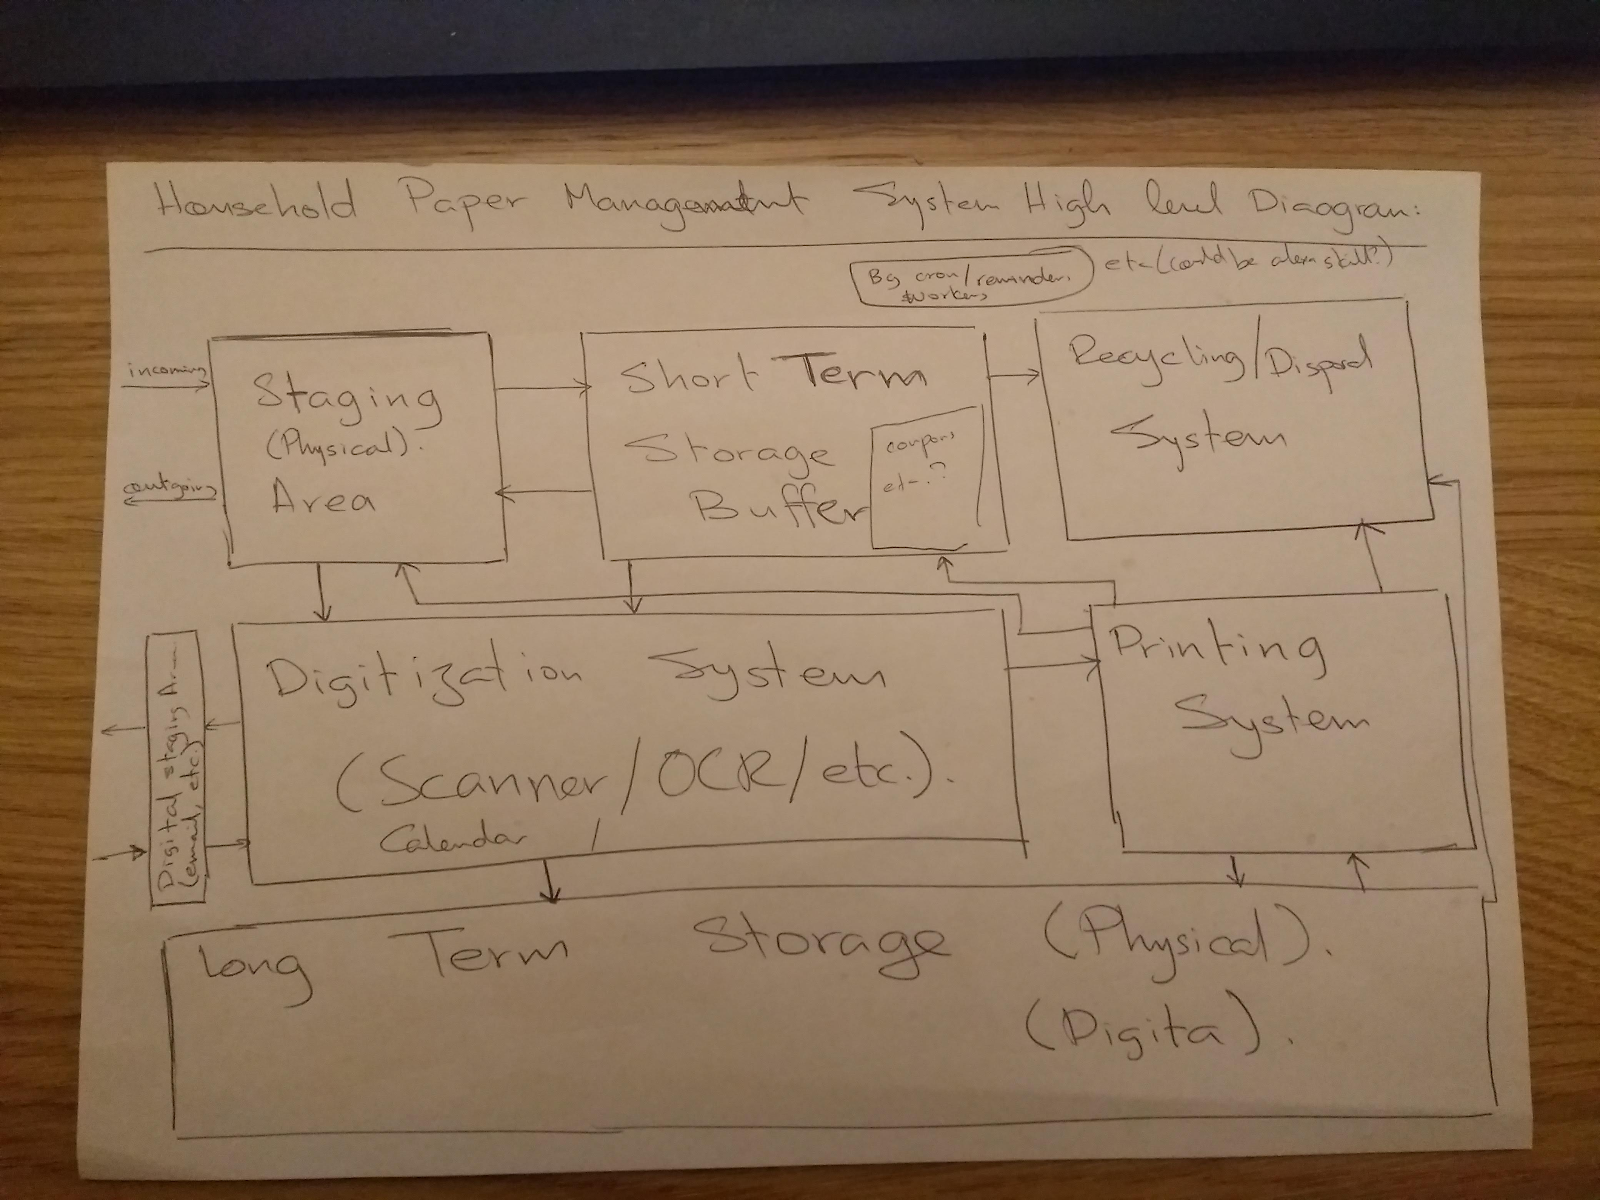 Household Paper Management System High level Diagram:
Bg cron/reminders
workers
etc (could be alexa skill?)
incoming
outgoing
Staging
(Physical).
Area
Short Term
Storage
Buffer
coupons
etc.?
Recycling/Disposal
System
Digital staging
(email, etc.)
Digitization System
(Scanner/OCR/etc.).
Calendar /
Printing
System
Long Term Storage (Physical).
(Digita).